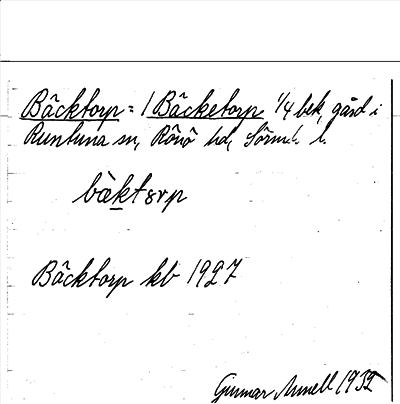 Bäcktorp = / Bäcketorp 1/4 bek, gård i
Runtuna sn, Rönö hd, Sörml. l.
bàktørp
Bäcktorp kb 1927
Gunnar Annell 1932